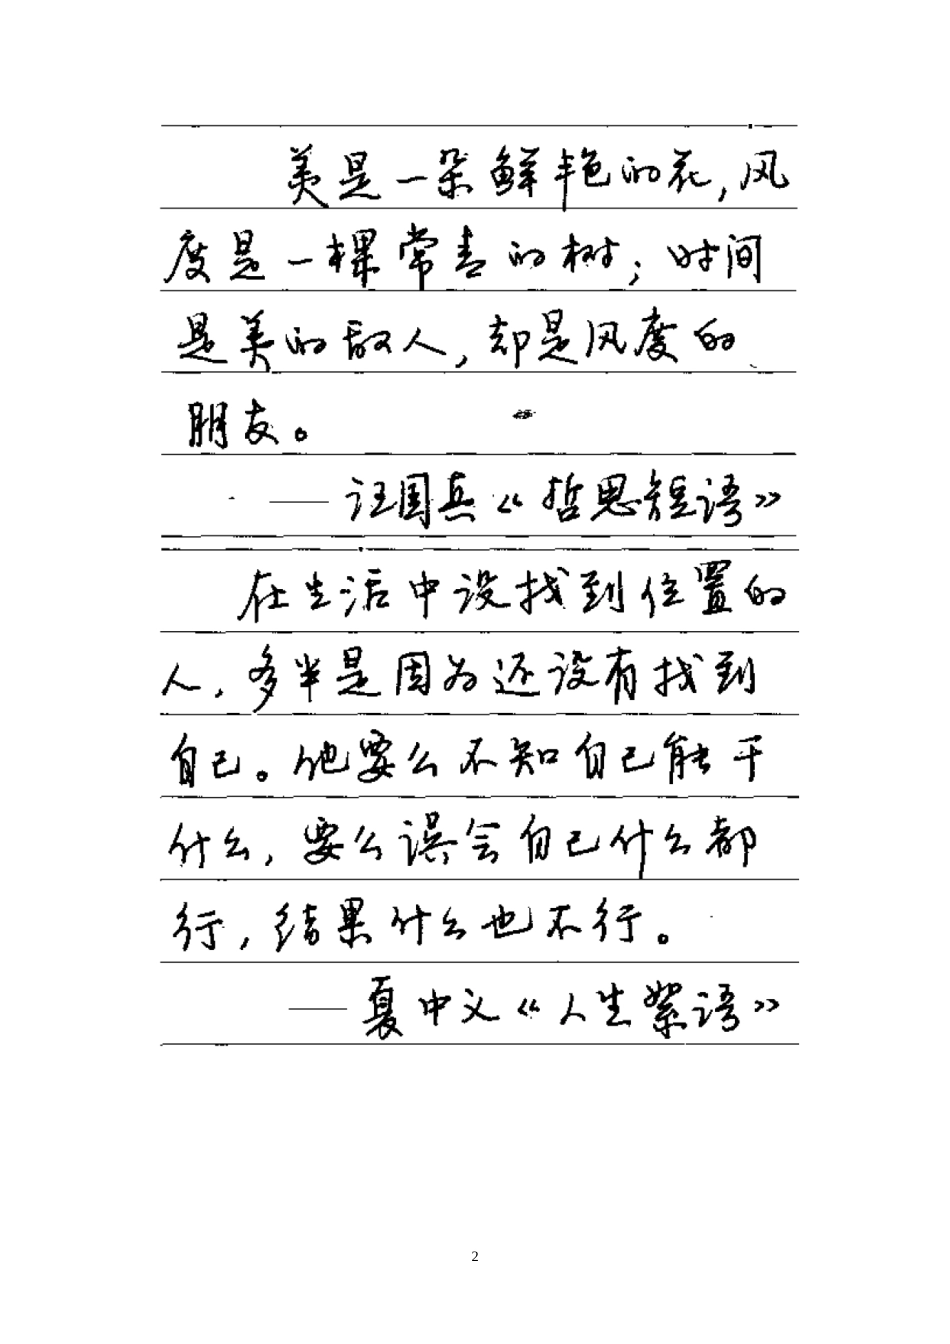 美是一朵鲜艳的花,风
度是一棵常青的树;时间
是美的敌人,却是风度的
朋友。
——汪国真《哲思短语》
在生活中没找到位置的
人,多半是因为还没有找到
自己。他要么不知自己能干
什么,要么误会自己什么都
行,结果什么也不行。
——夏中义《人生絮语》
2